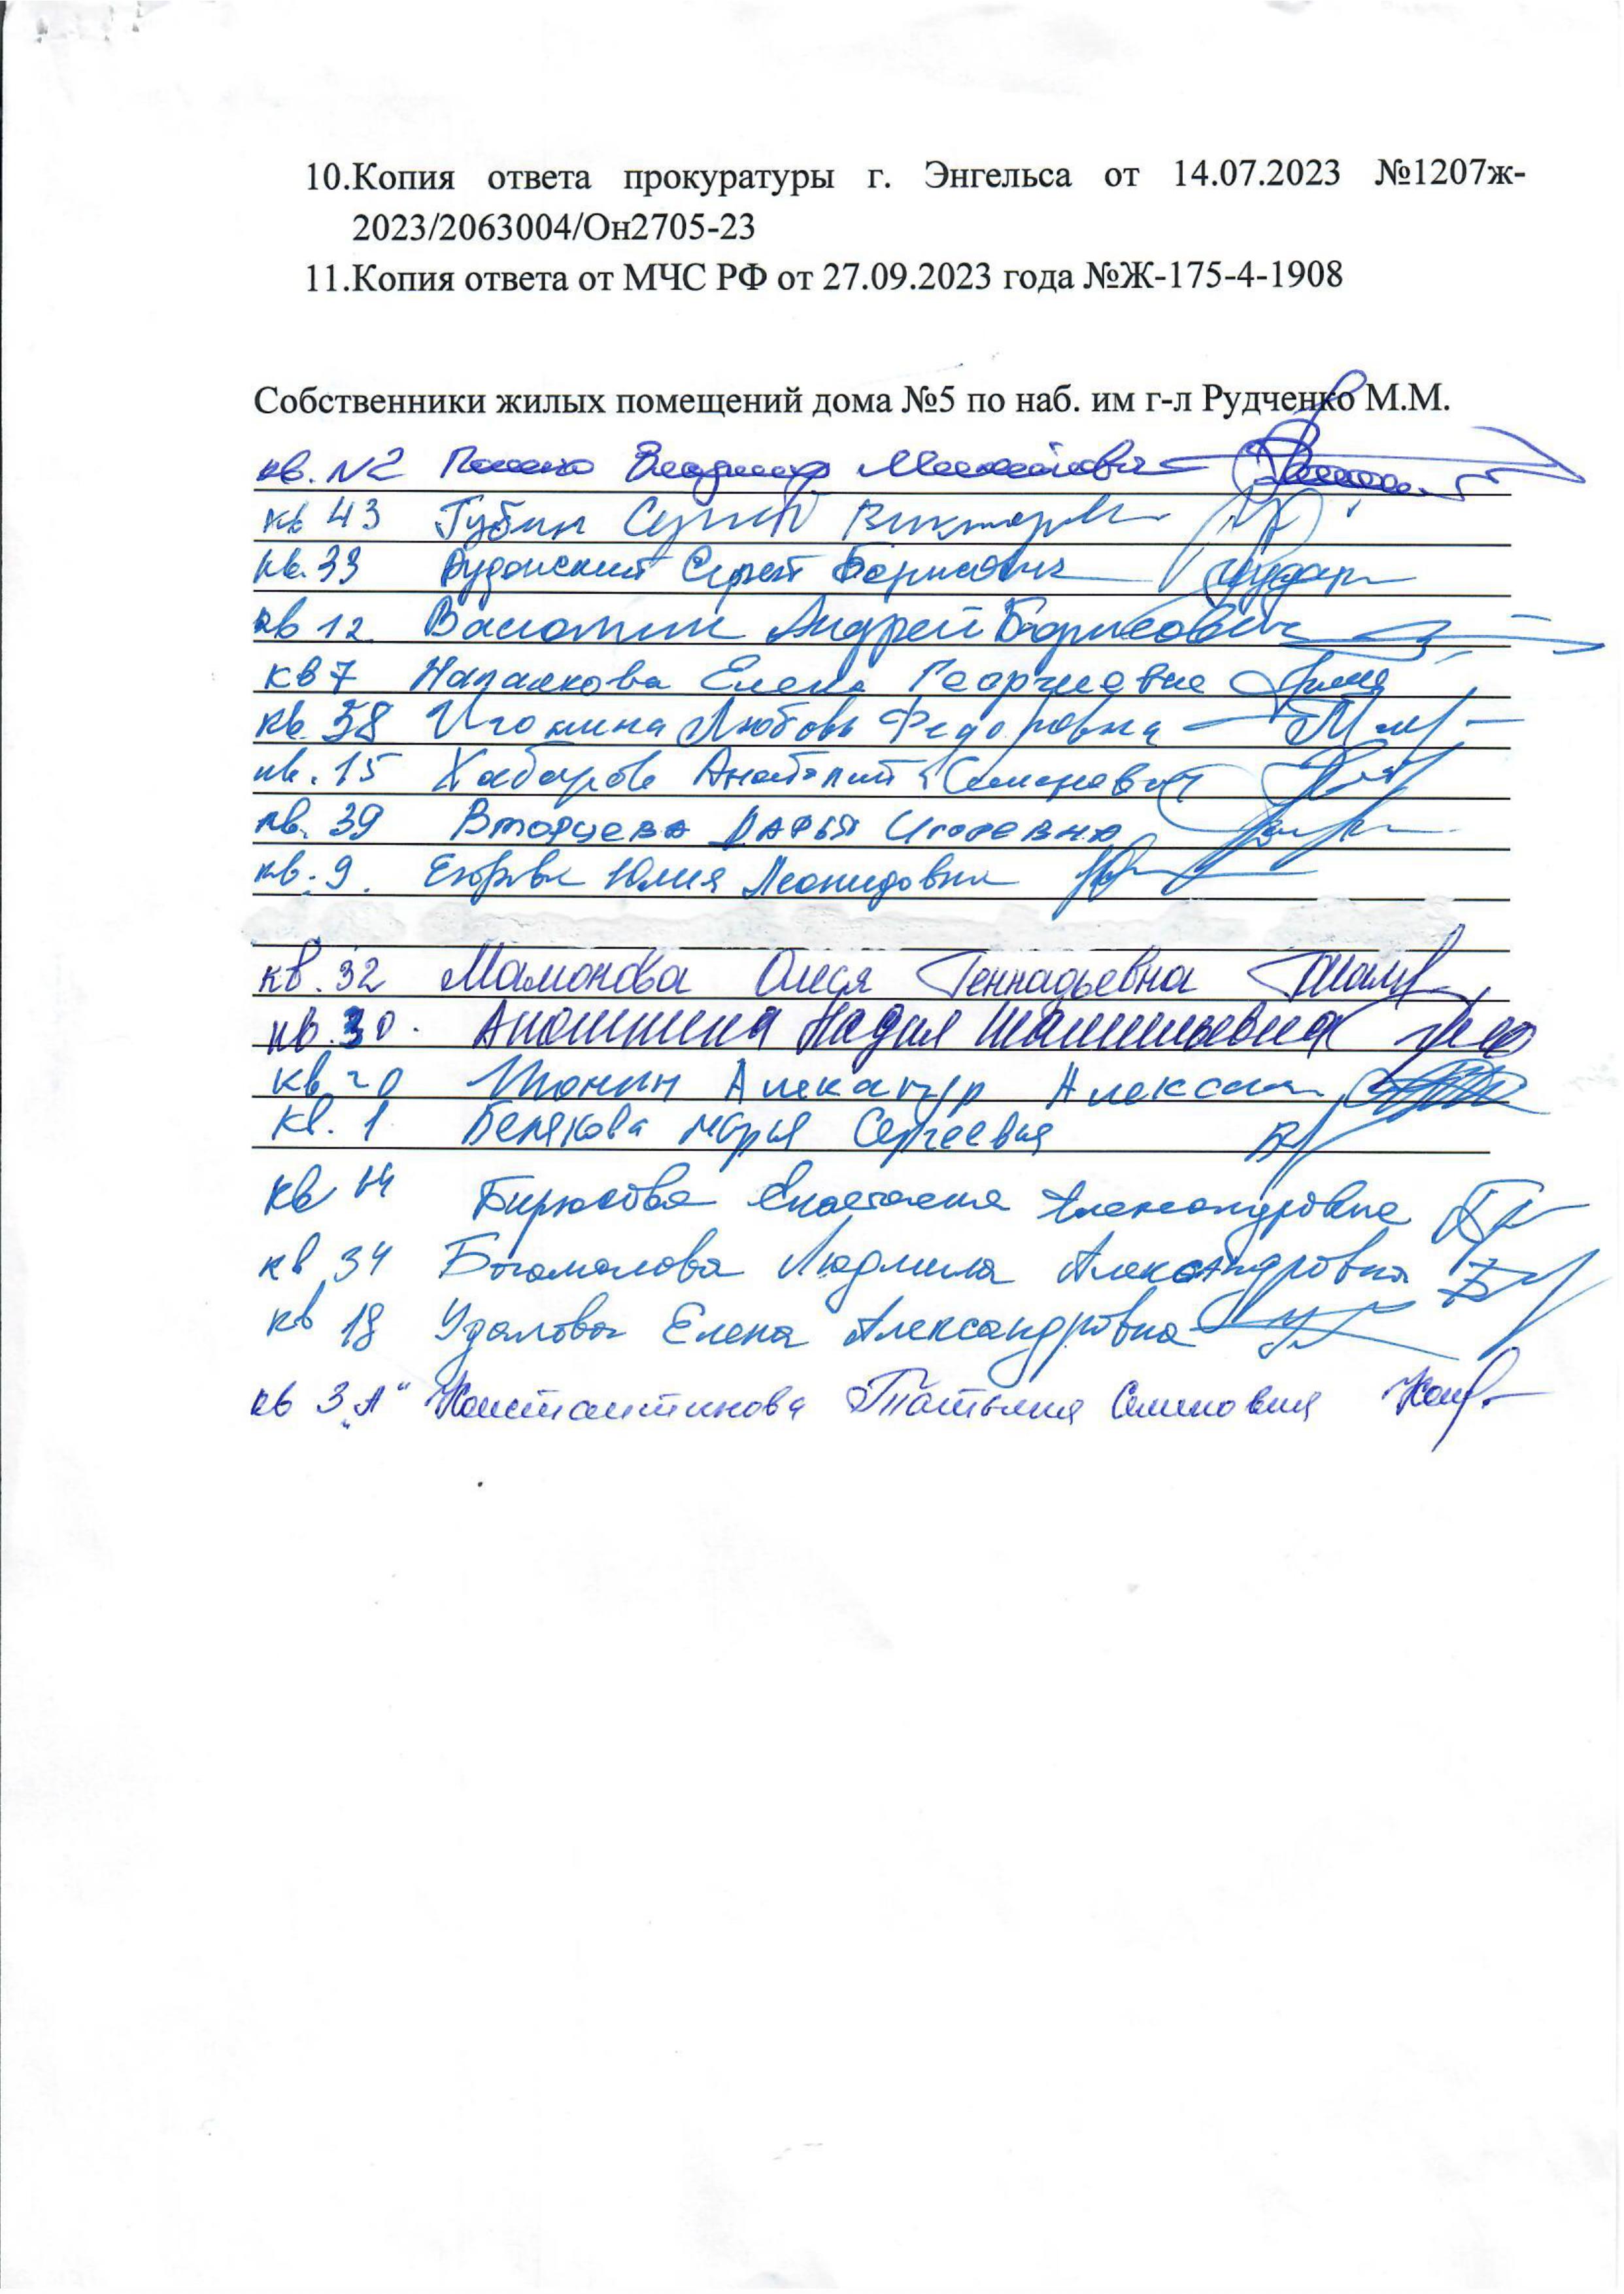 10.Копия ответа прокуратуры г. Энгельса от 14.07.2023 №1207ж-
2023/2063004/Он2705-23
11.Копия ответа от МЧС РФ от 27.09.2023 года №Ж-175-4-1908
Собственники жилых помещений дома №5 по наб. им г-л Рудченко М.М.
кв. N2 Владимир
кв 43 Губин Сергей Викторович
кв. 33 Сергей Борисович
кв 12 Андрей Борисович
кв 7 Елена Георгиевна
кв. 38 Любовь Федоровна
кв. 15 Хабаров Анатолий Семенович
кв. 39 Дарья Игоревна
кв. 9. Егорова Юлия Леонидовна
кв. 32 Мамонова Олеся Геннадьевна
кв. 30. Аношкина Надия Шамильевна
кв 20
кв. 1 Белякова Марья Сергеевна
кв Бирюкова Анастасия Александровна
кв 34 Богомолова Людмила Александровна
кв 18 Удалова Елена Александровна
кв 3 „А“ Константинова Татьяна Семеновна